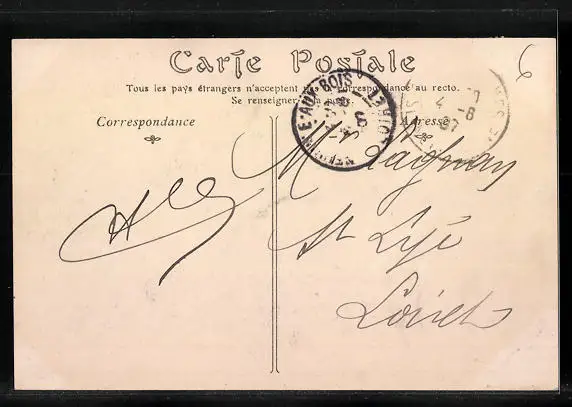 Carte Postale
6
Tous les pays étrangers n'acceptent pas correspondance au recto.
Se renseigner à la poste
Correspondance
Adresse
NEUVILLE-AUX-BOIS LOIRET
2 -8 07
Mr Pagnay
St Lyé
Loiret